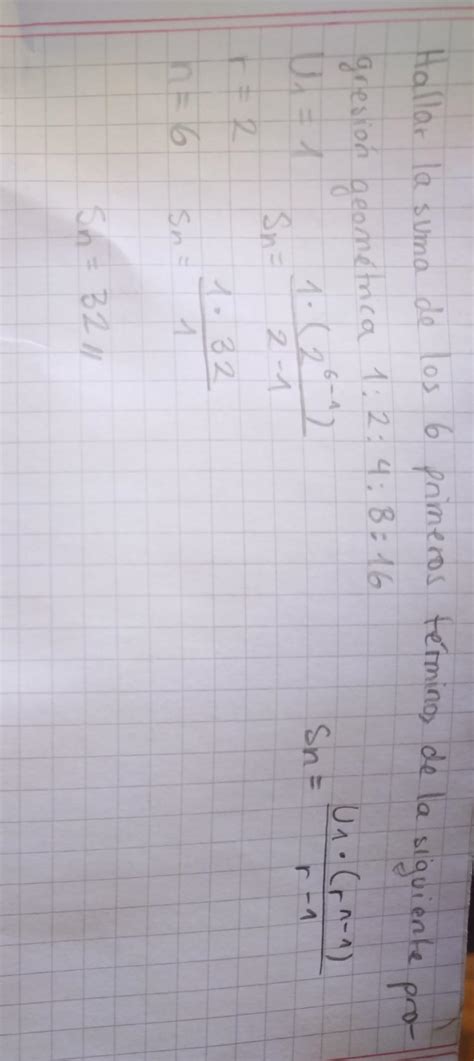 Hallar la suma de los 6 primeros términos de la siguiente pro-
gresión geométrica 1:2:4:8:16
U₁ = 1
r = 2
n = 6
Sn = 1·(2⁶⁻¹) / 2-1
Sn = 1·32 / 1
Sn = 32 //
Sn = U₁·(rⁿ⁻¹) / r-1